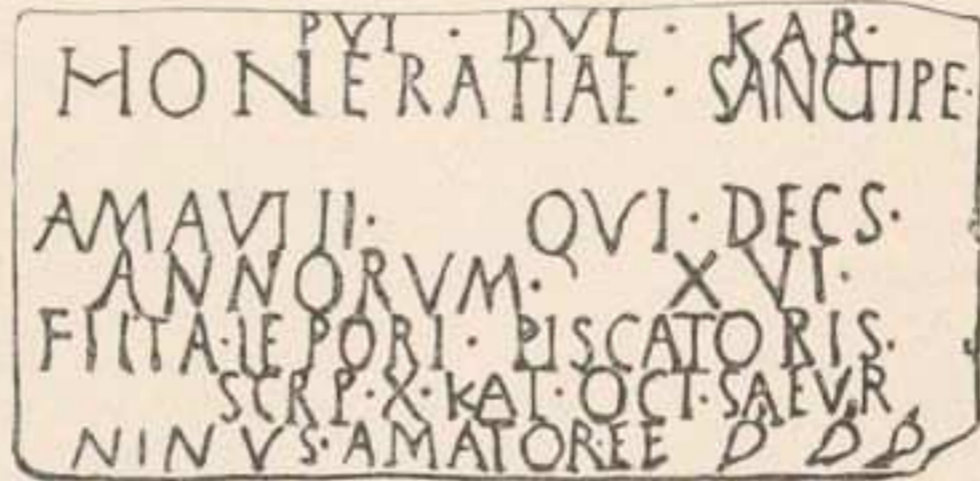 PVI · DVL · KAR·
HONERATIAE · SANCTIPE·
AMAVIII· QVI·DECS·
ANNORVM· XVI·
FILTA·LEPORI· PISCATORIS·
SCRP·X·KAL·OCT·SAEVR
NINVS·AMATOR·EE D D D